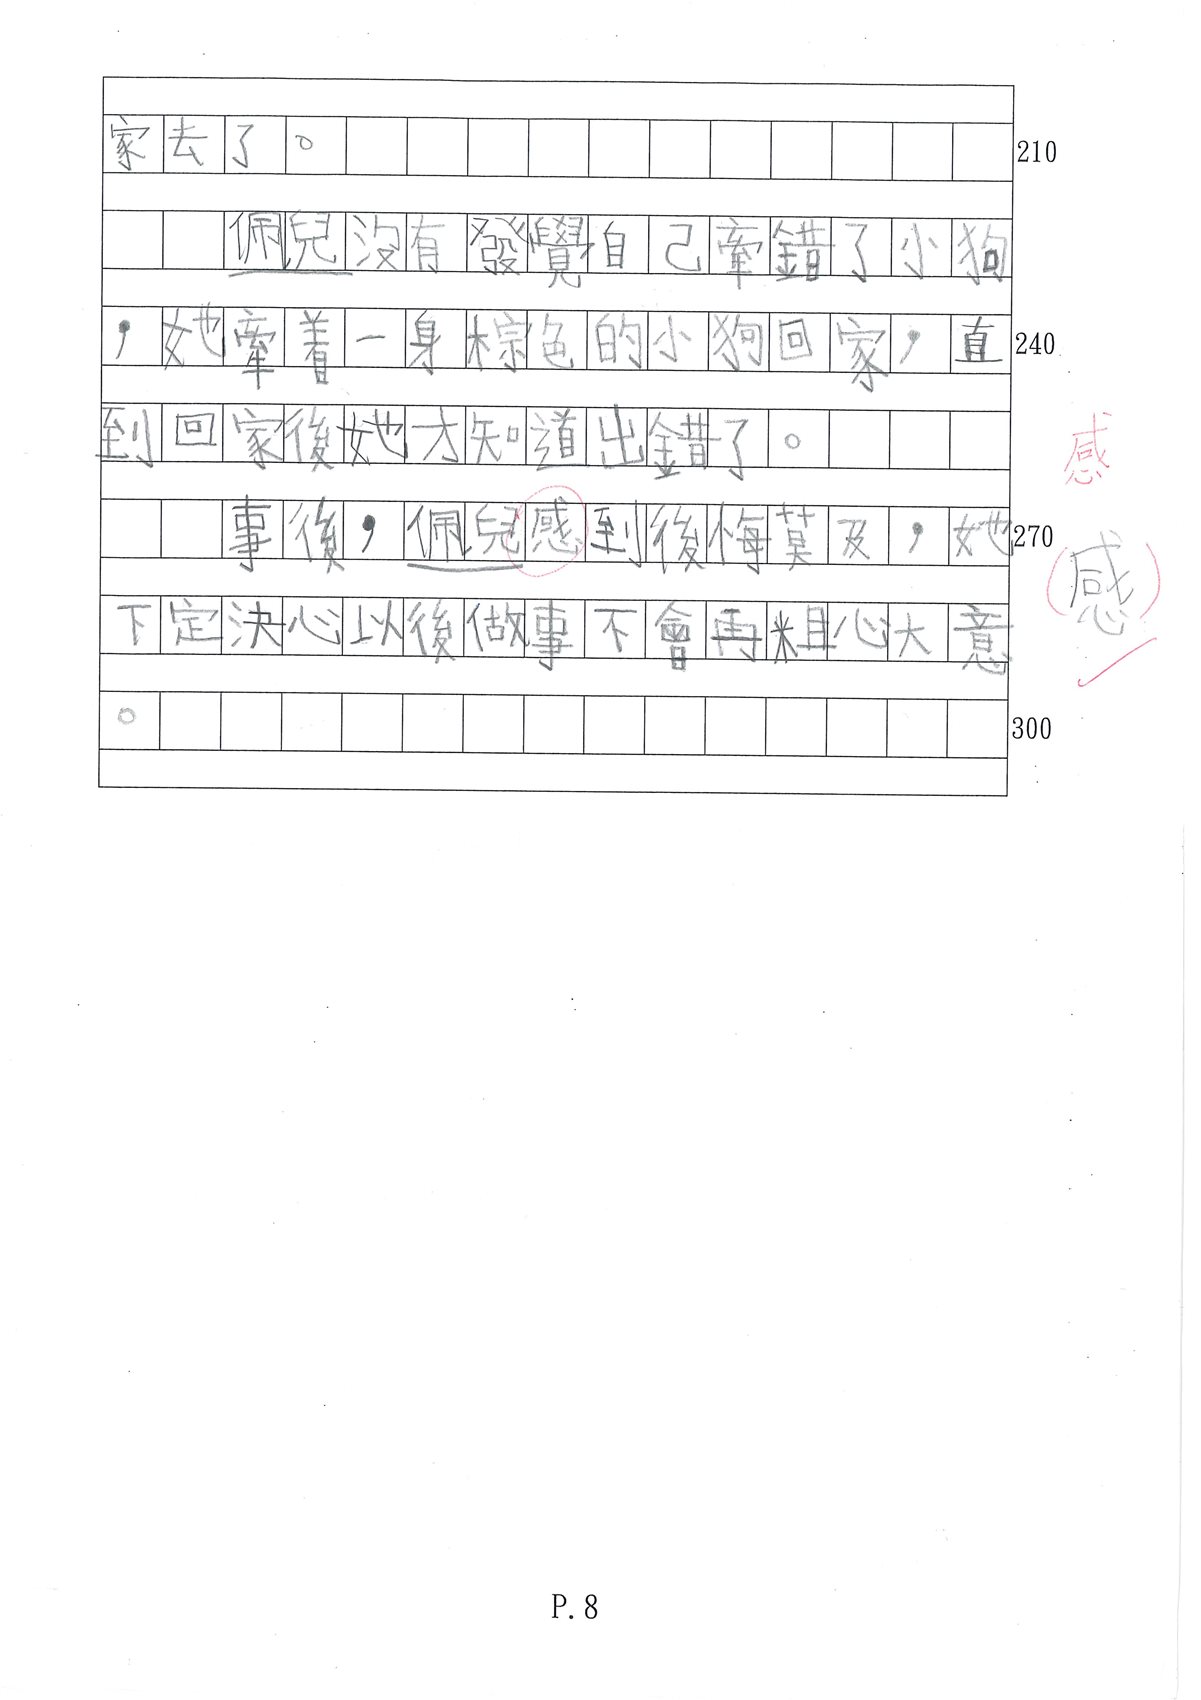 家去了。 210
佩兒沒有發覺自己牽錯了小狗
，她牽着一身棕色的小狗回家，直 240
到回家後她才知道出錯了。
感
事後，佩兒感到後悔莫及，她 270
(感)
下定決心以後做事不會再粗心大意
。 300
P.8